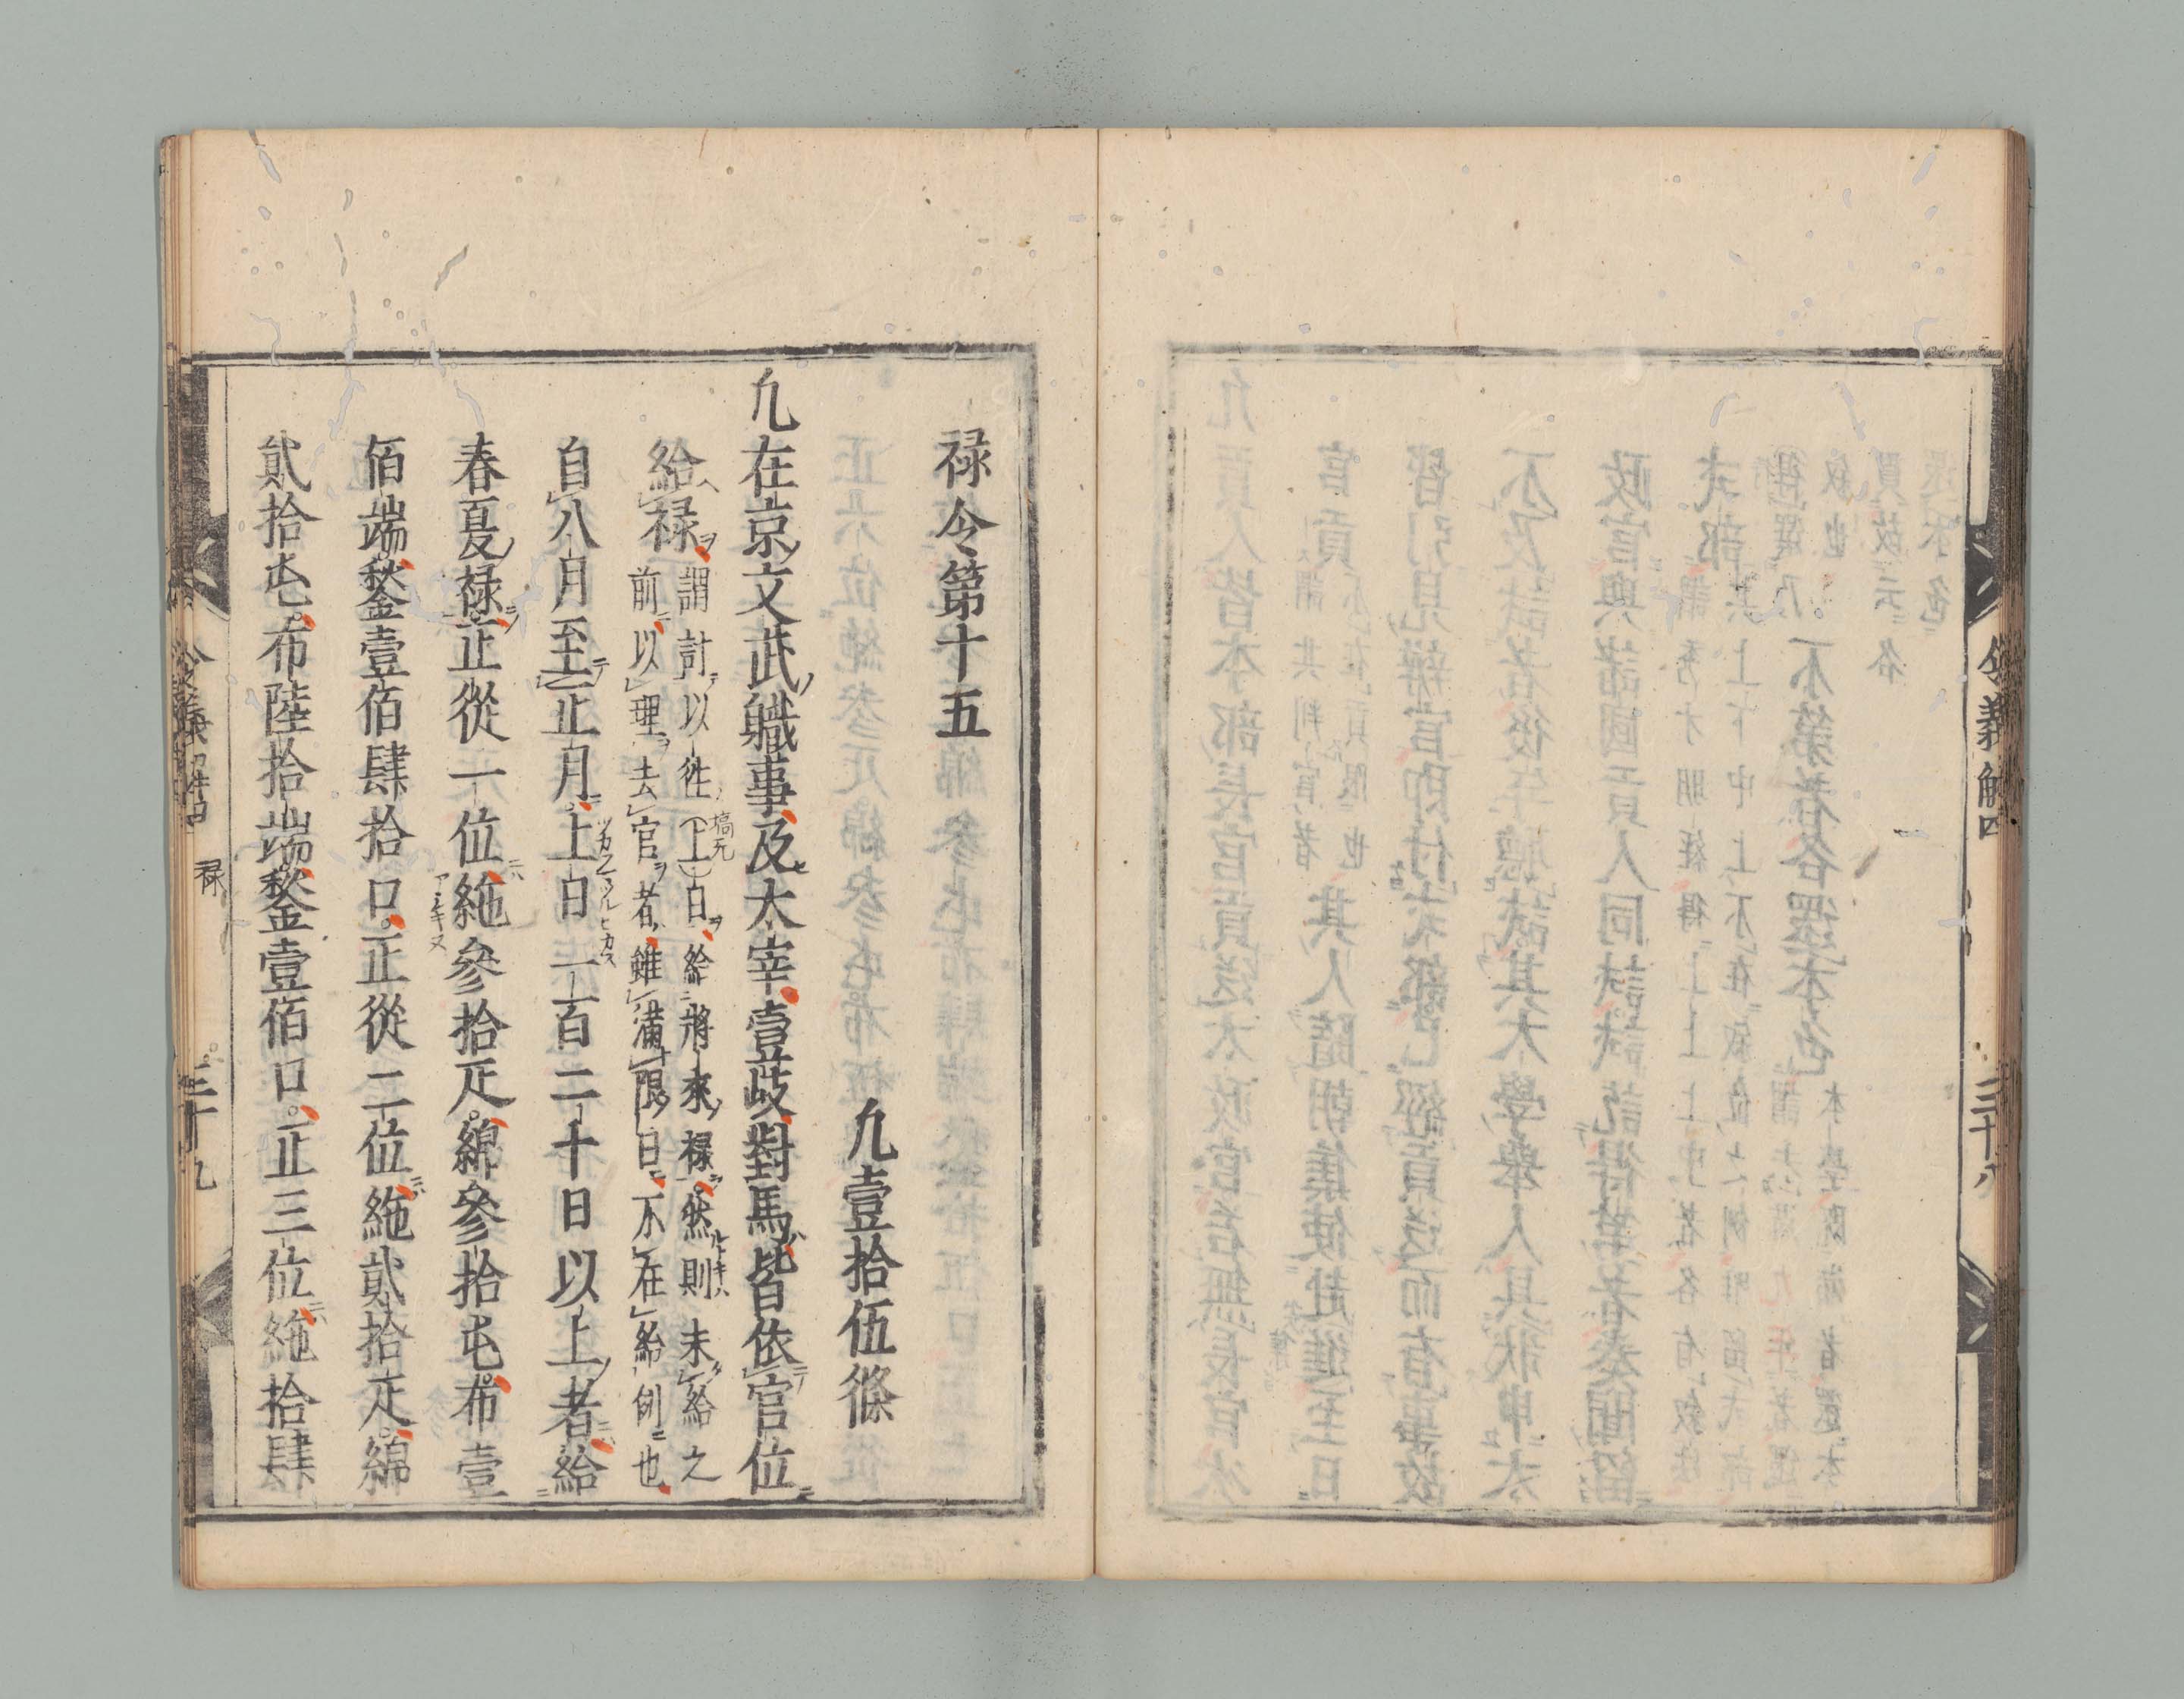 令義解四
三十八
禄令第十五
凡壹拾伍條
凡在京文武軄事及太宰壹歧對馬皆依官位
給禄謂計以徃(上)日給將來禄然則未給之
前以理去官者雖滿限日不在給例也
塙无
自八月至正月上日一百二十日以上者給
ツカヘマツルヒカス
春夏禄正從一位絁參拾疋綿參拾屯布壹
アシキヌ
佰端鍫壹佰肆拾口正從二位絁貳拾疋綿
貳拾屯布陸拾端鍫壹佰口正三位絁拾肆
禄
三十九